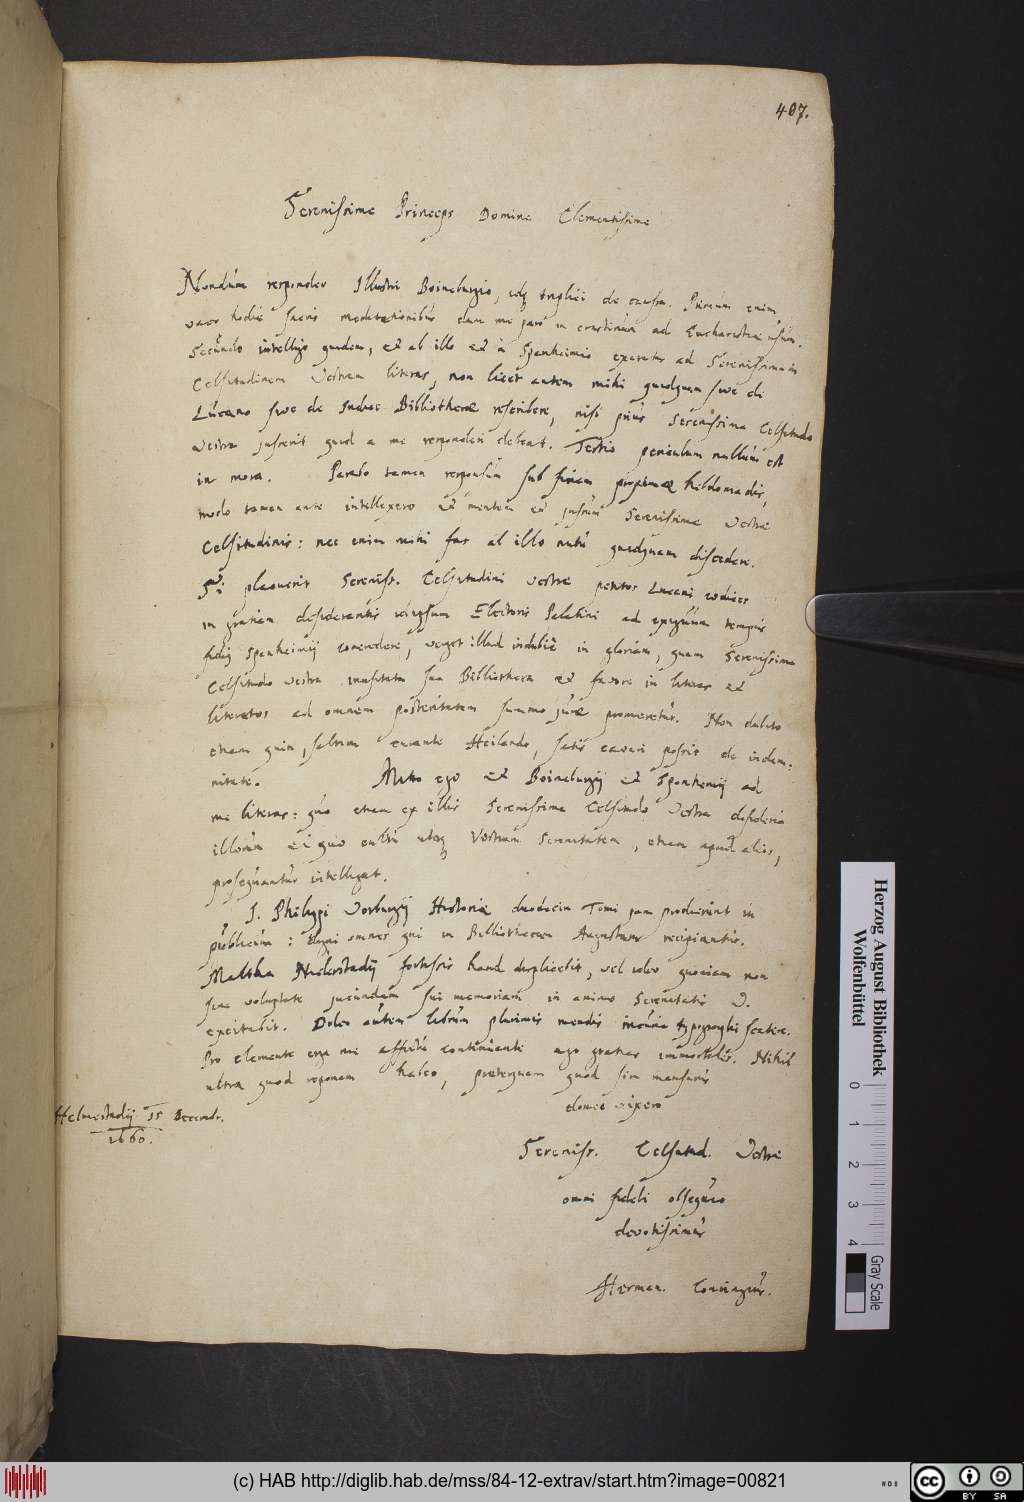 407.
Serenissime Princeps Domine Clementissime
Nondum respondeo Illustri Boineburgio, idq triplici de causa. Primum enim
vaco hodie sacris meditationibus dum me paro in crastinum ad Eucharistiæ usum.
Secundo intelligo quidem, et ab illo et à Spanheimio exaratas ad Serenissimam
Celsitudinem Vestram literas, non licet autem mihi quidquam sive de
Lucano sive de Indice Bibliothecæ rescribere, nisi prius Serenissima Celsitudo
Vestra jusserit quid a me responderi debeat. Tertio periculum nullum est
in mora. Parabo tamen responsum sub finem proximæ hebdomadis,
modo tamen ante intellexero et mentem et jussum Serenissimæ Vestræ
Celsitudinis: nec enim mihi fas ab illo nutu quidquam discedere.
Si placuerit Sereniss. Celsitudini Vestræ petitos Lucani codices
in gratiam desiderantis Electoris Palatini ad exiguum tempus
fidei Spanhemij concredere, verget illud indubiè in gloriam, quam Serenissima
Celsitudo Vestra sua Bibliotheca et favore in literas et
literatos ad omnem posteritatem summo jure promeretur. Non dubito
etiam quin, saltem curante Heilando, satis caveri possit de indem:
nitate. Mitto ego et Boineburgij et Spanhemij ad
me literas: quo etiam ex illis Serenissima Celsitudo Vestra desideria
illorum et quo cultu uterq Vestram Serenitatem, etiam apud alios,
prosequantur intelligat.
J. Philippi Vorburgij Historiæ duodecim Tomi jam prodierunt in
publicum: omnes qui in Bibliothecam Augustam recipiantur.
Maltha Niderstadij fortassis haud displicebit, vel ideo quoniam non
sine voluptate jucundam sui memoriam in animo Serenitatis V.
excitabit. Doleo autem librum plurimis mendis incuria typographi scatere.
Pro clemente erga me affectu continuanti ago gratias immortales. Nihil
ultra quod reponam habeo, præterquam quod sim mansurus
donec vixero
Helmestadij 15 Decembr.
1660.
Sereniss. Celsitud. Vestræ
omni fideli obsequio
devotissimus
Herman. Conringius.
Herzog August Bibliothek
Wolfenbüttel
0 1 2 3 4
Gray Scale
(c) HAB http://diglib.hab.de/mss/84-12-extrav/start.htm?image=00821
cc BY SA